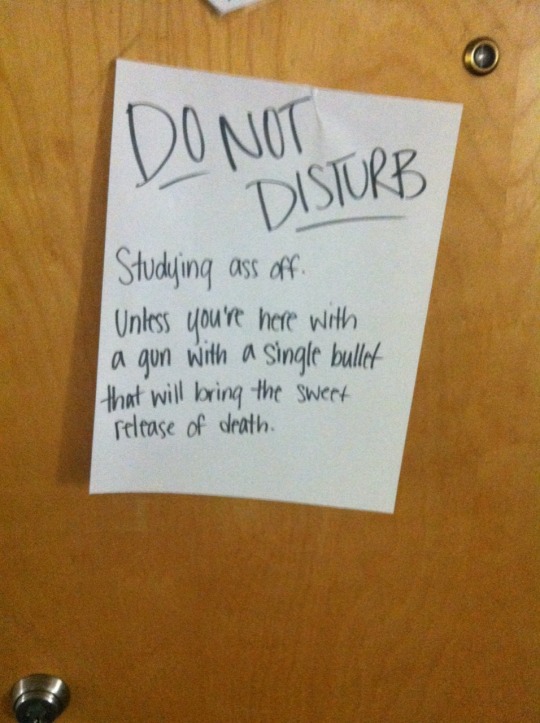 DO NOT
DISTURB
Studying ass off.
Unless you're here with
a gun with a single bullet
that will bring the sweet
release of death.